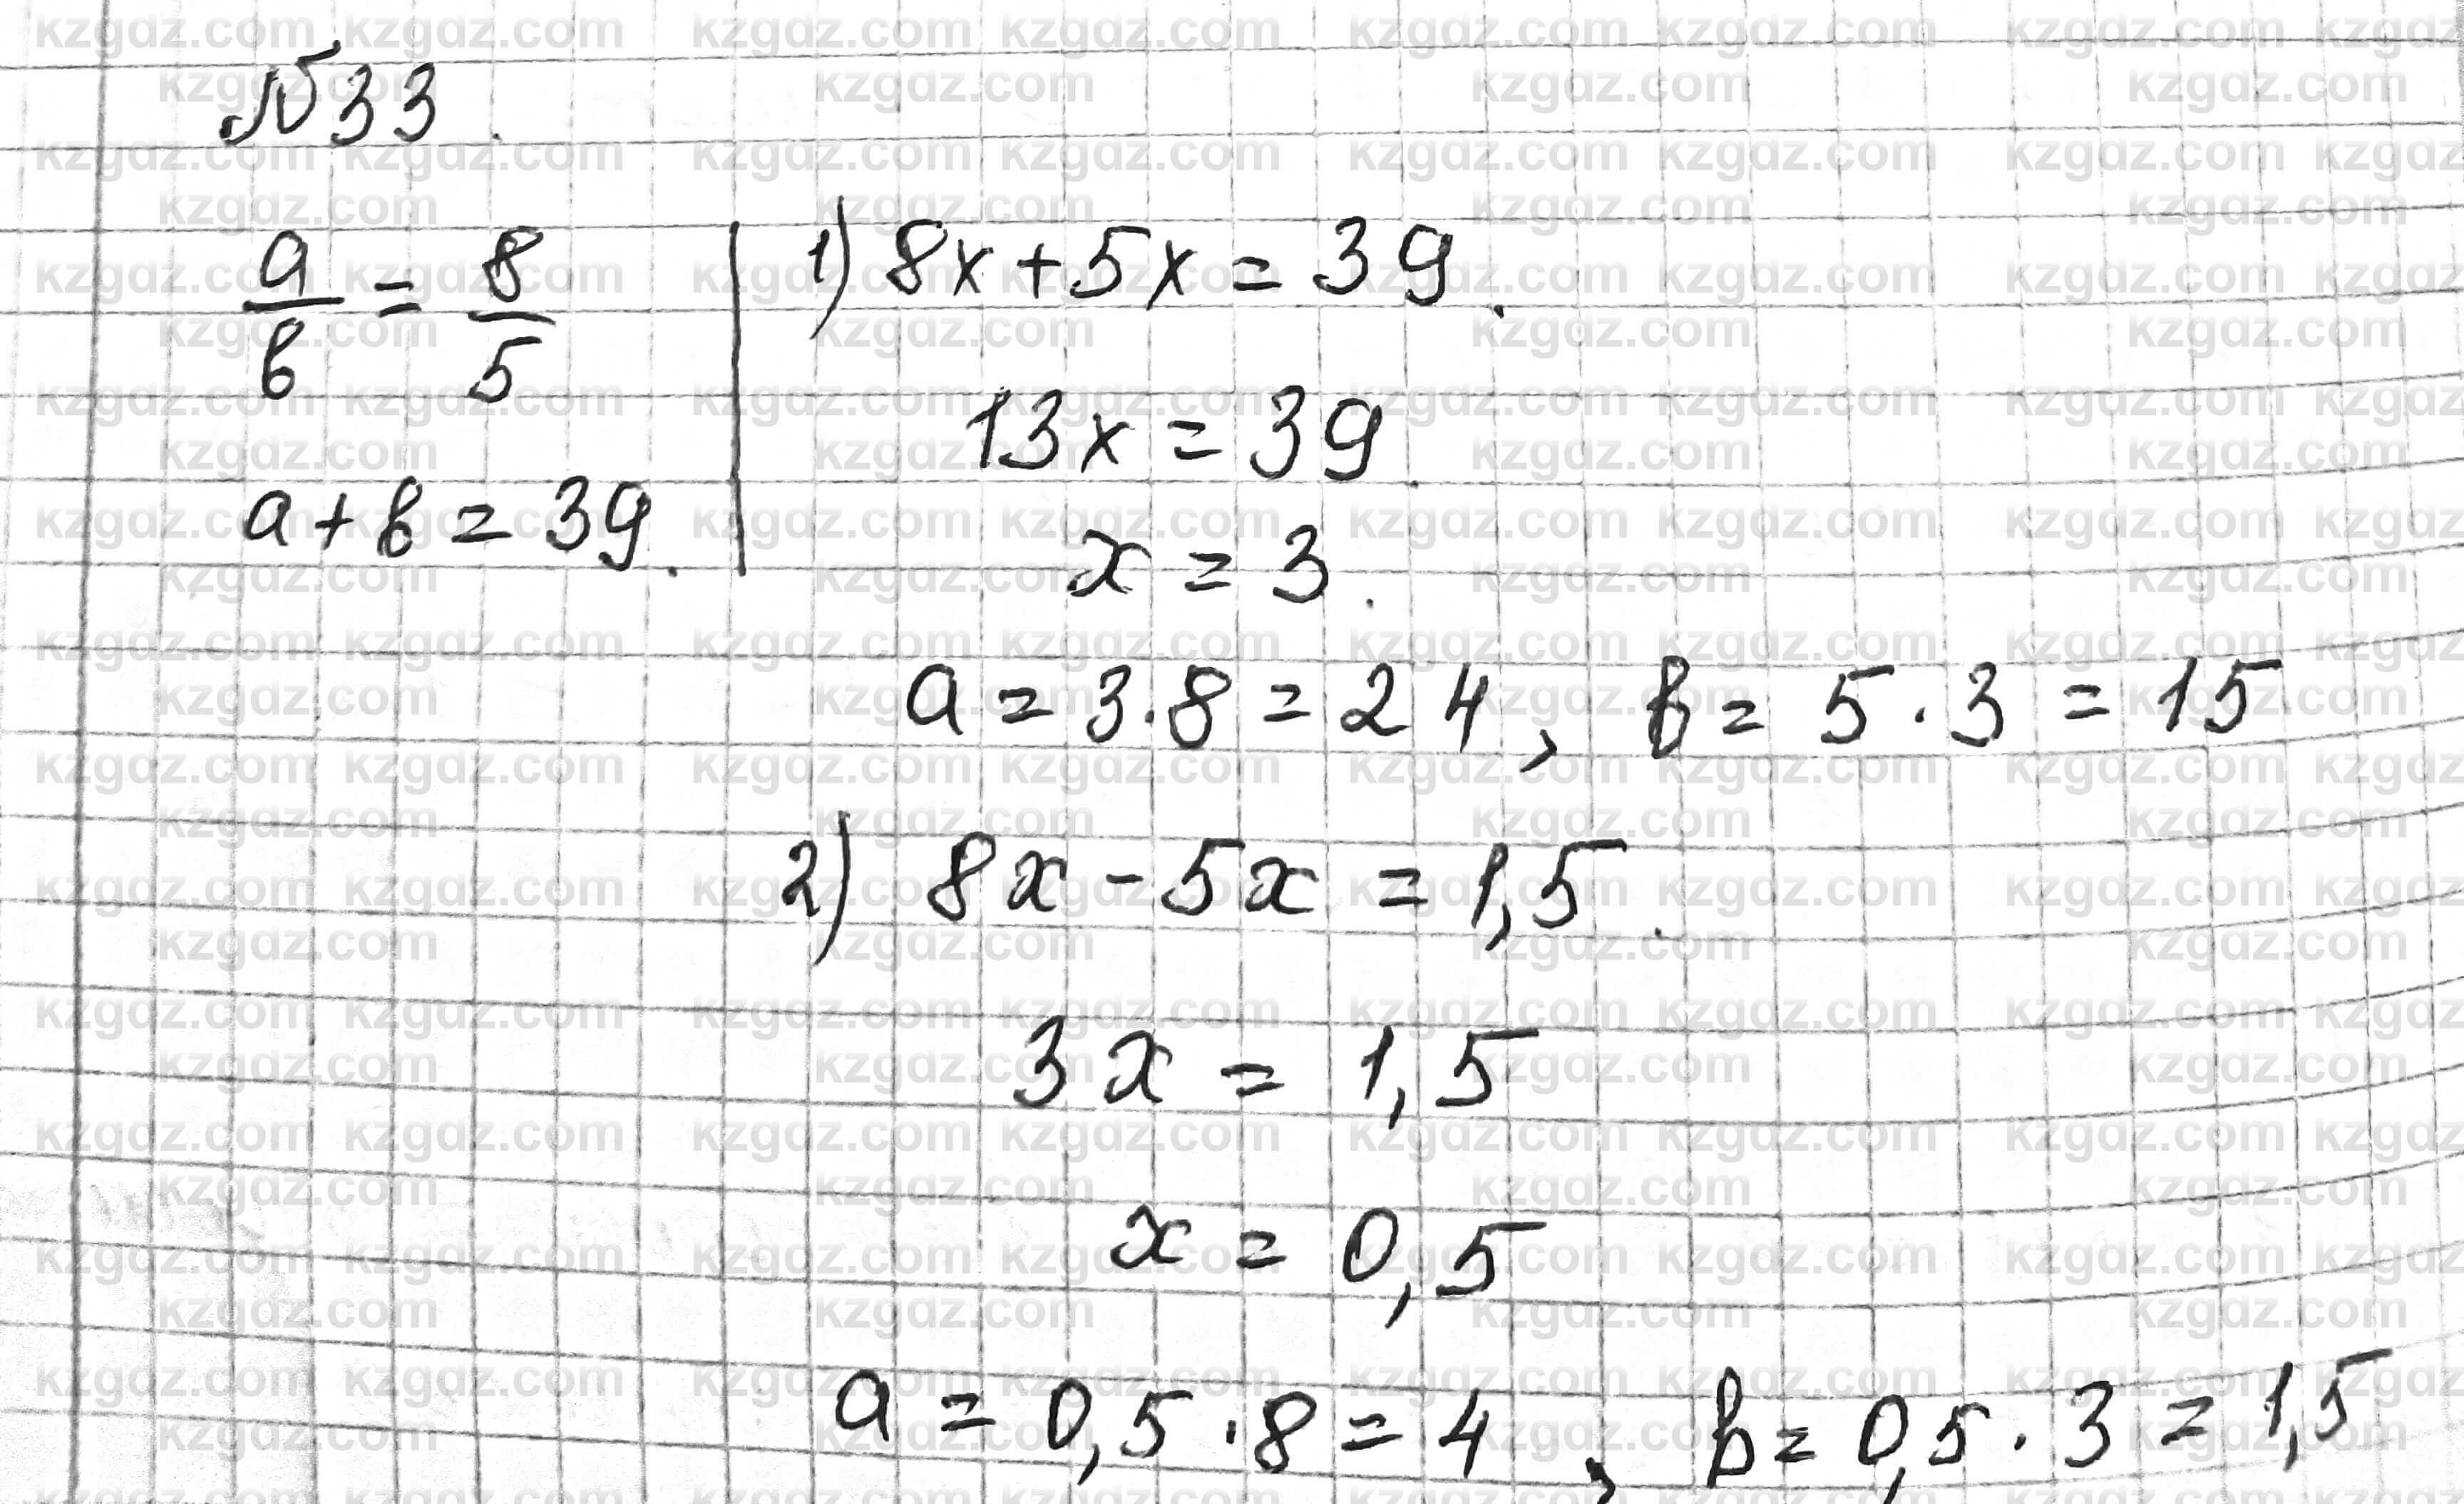 №33.
a/в = 8/5
a+в=39.
1) 8x+5x=39.
13x=39.
x=3.
a=3·8=24, в=5·3=15
2) 8x-5x=1,5.
3x=1,5
x=0,5
a=0,5·8=4, в=0,5·3=1,5
kzgdz.com